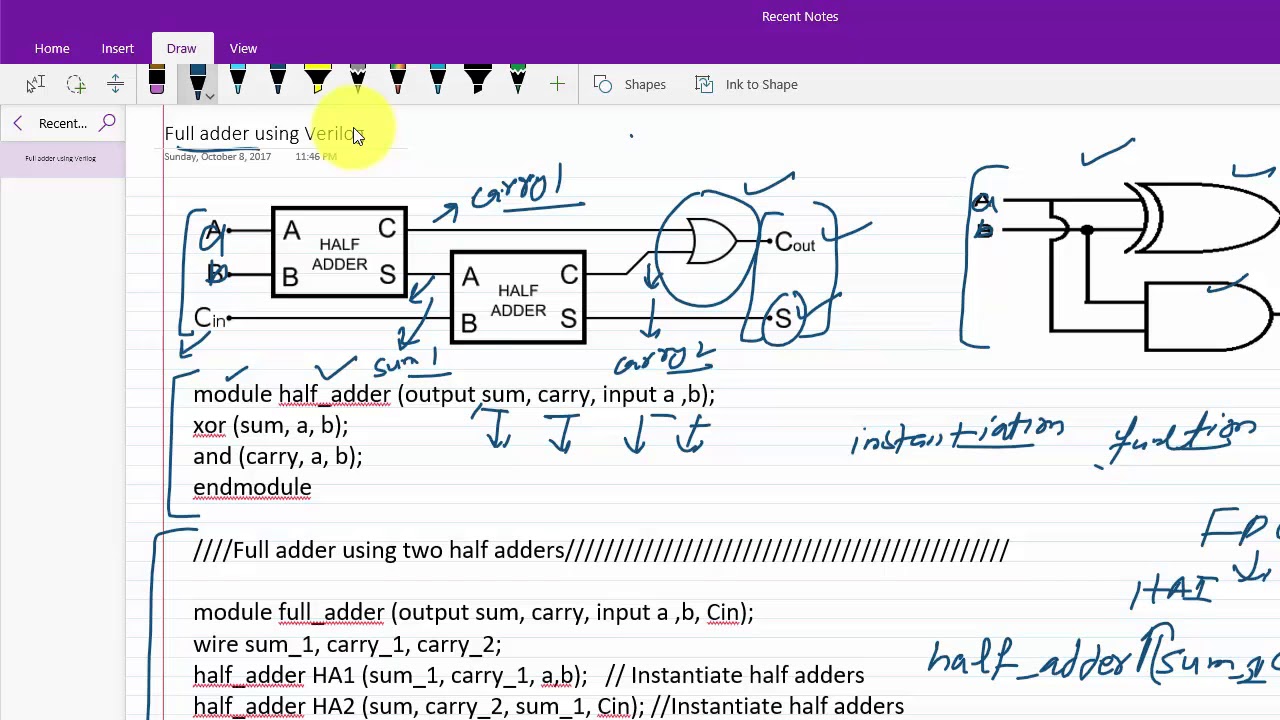 Recent Notes
Home Insert Draw View
Shapes Ink to Shape
Recent...
Full adder using Verilog
Full adder using Verilog
Sunday, October 8, 2017 11:46 PM
carry1
A A HALF ADDER C Cout
a
B B S A HALF ADDER C
b
Cin B S S
sum1 carry2
A
a
B
module half_adder (output sum, carry, input a ,b);
xor (sum, a, b);
and (carry, a, b);
endmodule
instantiation function
////Full adder using two half adders/////////////////////////////////////////////
HA1
module full_adder (output sum, carry, input a ,b, Cin);
wire sum_1, carry_1, carry_2;
half_adder (sum_1
half_adder HA1 (sum_1, carry_1, a,b); // Instantiate half adders
half_adder HA2 (sum, carry_2, sum_1, Cin); //Instantiate half adders